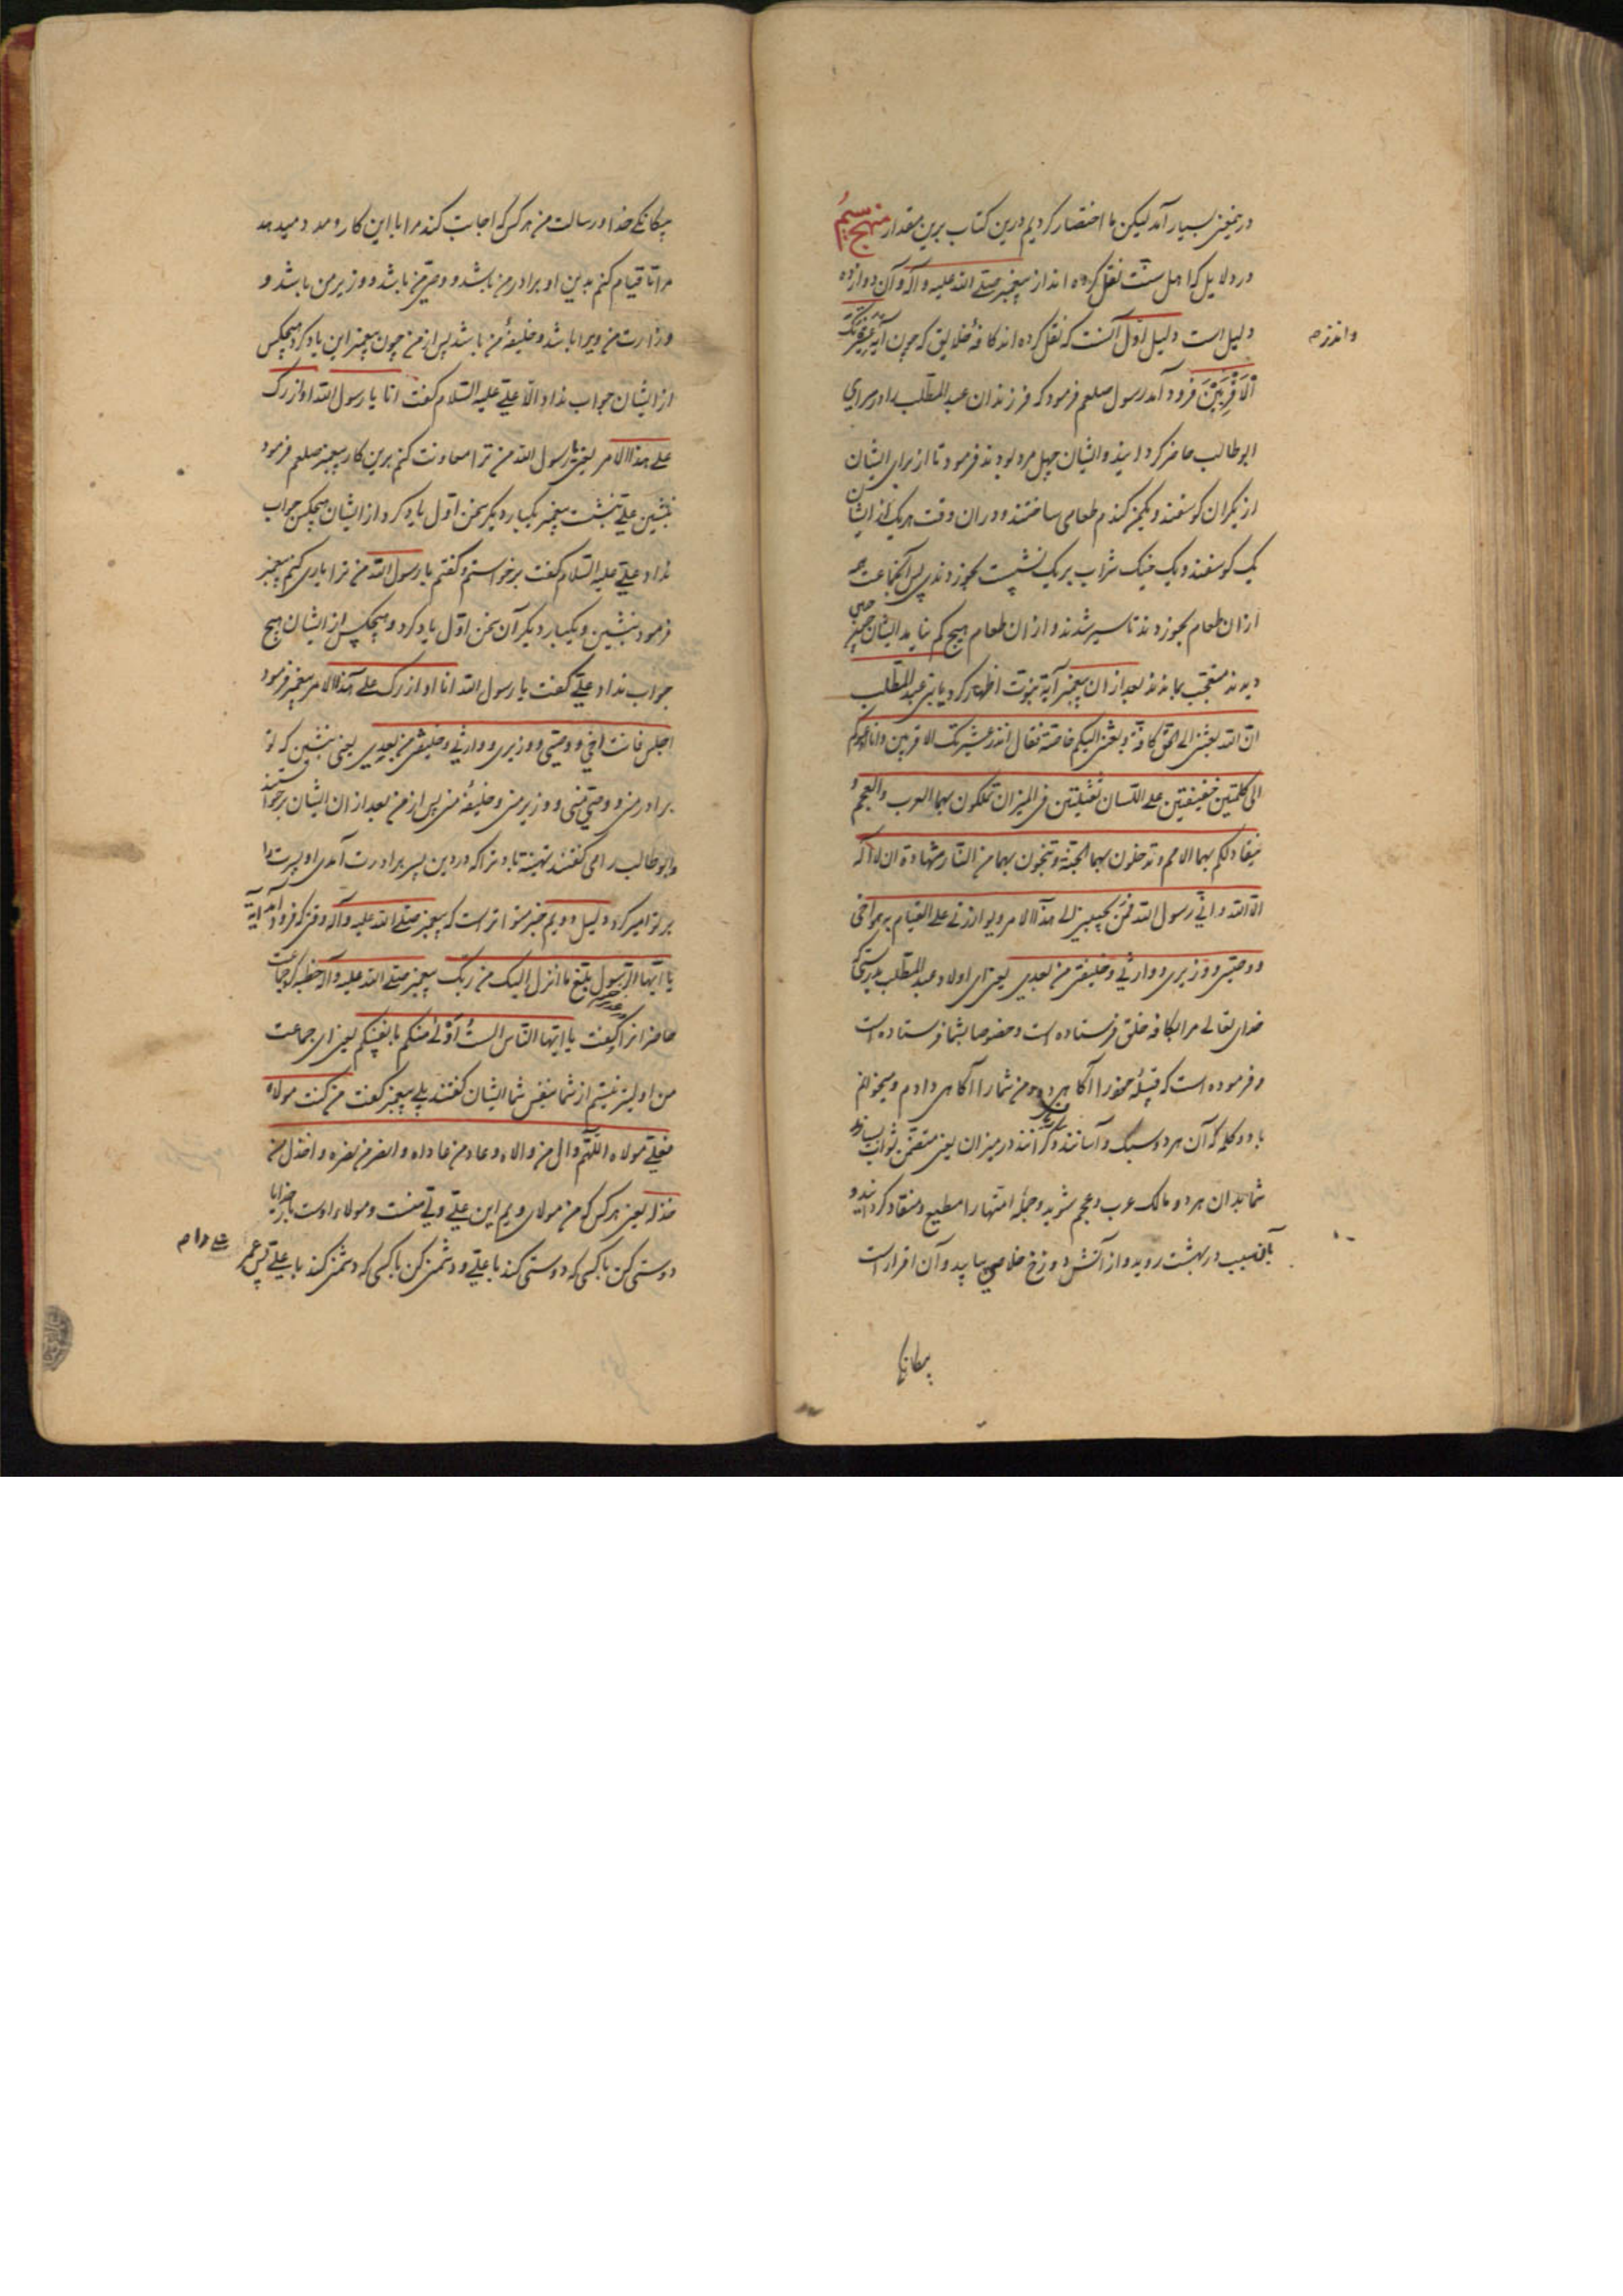 درینمعنی بسیار آمد لیکن ما اختصار کردیم درین کتاب برین مقدار منهج سیم
در دلایلی که اهل سنّت نقل کرده اند از پیغمبر صلّی الله علیه و آله و آن دوازده
دلیل است دلیل اوّل آنست که نقل کرده اند کافهٔ خلایق که چون آیه عشیرتک
وانذر م
الاَقْرَبِیْنَ فرود آمد رسول صلعم فرمود که فرزندان عبد المطّلب را در سرای
ابوطالب حاضر کردانید و ایشان چهل مرد بودند فرمود تا از برای ایشان
از یکران کوسفند و یکمن کندم طعامی ساختند و در ان وقت هریک از ایشان
یک کوسفند و یک خیک شراب بر یک نشست بخوردندی پس آنجماعت
ازان طعام بخوردند تا سیر شدند و ازان طعام هیچ کم نیامد ایشان چون چنین
دیدند متعجّب بماندند بعد ازان پیغمبر آیة نبوّت اظهار کرد یا بنی عبد المطّلب
انّ الله بعثنی الی الخلق کافة و بعثنی الیکم خاصّة فقال انذر عشیرتک الاقربین و انا ادعوکم
الی کلمتین خفیفتین علی اللّسان ثقیلتین فی المیزان تملکون بهما العرب و العجم و
ینقاد لکم بهما الامم و تدخلون بهما الجنّة و تنجون بهما من النّار شهادة ان لا اله
الّا الله و انّی رسول الله فمن یجیبنی الی هذا الامر و یوازرنی علی القیام به هو اخی
و وصیّی و وزیری و وارثی و خلیفتی من بعدی یعنی ای اولاد عبد المطّلب بدرستیکه
خدای تعالی مرا بکافه خلق فرستاده است و خصوصا بشما فرستاده است
و فرموده است که قبیلهٔ خود را آکاهی ده و من شما را آکاهی دادم و میخوانم
با دو کلمه که آن هر دو سبک و آسانند بر زبان و کرانند در میزان یعنی متضمّن ثواب بسیارند
شما بدان هر دو مالک عرب و عجم شوید و جملهٔ امّتها را مطیع و منقاد کردانید و
بآن سبب در بهشت روید و از آتش دوزخ خلاص یابید و آن اقرار است
بیکانکی
بیکانکی خدا و رسالت من هر کس که اجابت کند مرا با این کار و مدد میدهد
مرا تا قیام کنم بدین او برادر من باشد و وصیّ من باشد و وزیر من باشد و
وزارت من ویرا باشد و خلیفهٔ من باشد پس از من چون پیغمبر این یاد کرد هیچکس
از ایشان جواب نداد الّا علی علیه السّلام کفت انا یا رسول الله اوازرک
علی هذا الامر یعنی یا رسول الله من ترا معاونت کنم برین کار پیغمبر صلعم فرمود
بنشین علی بنشست پیغمبر یکبار دیکر سخن اوّل یاد کرد از ایشان هیچکس جواب
نداد علی علیه السّلام کفت برخواستم و کفتم یا رسول الله من ترا یاری کنم پیغمبر
فرمود بنشین و یکبار دیکر آن سخن اوّل یاد کرد و هیچکس از ایشان هیچ
جواب نداد علی کفت یا رسول الله انا اوازرک علی هذا الامر پیغمبر فرمود
اجلس فانت اخی و وصیّی و وزیری و وارثی و خلیفتی من بعدی یعنی بنشین که تو
برادر منی و وصیّ منی و وزیر منی و خلیفهٔ منی پس از من بعد ازان ایشان برخواستند
و ابوطالب را می کفتند تهنیة باد ترا که در دین پسر برادرت آمدی او پسرت را
بر تو امیر کرد دلیل دویم خبر متواتر است که پیغمبر صلّی الله علیه و آله وقتی که فرود آمد آیه
یا ایّها الرّسول بلّغ ما انزل الیک من ربّک پیغمبر صلّی الله علیه و آله خطبه کرد جماعت
حاضرانرا کفت یا ایّها النّاس الستُ اَوْلی منکم بانفسکم یعنی ای جماعت
من اولیتر نیستم از شما بنفس شما ایشان کفتند بلی پیغمبر کفت من کنت مولاه
فعلی مولاه اللّهمّ وال من والاه و عاد من عاداه و انصر من نصره و اخذل من
خذله یعنی هر کس که من مولای ویم این علی ولی منست و مولاء اوست بار خدایا
دوستی کن با کسی که دوستی کند با علی و دشمنی کن با کسی که دشمنی کند با علی پس عمر